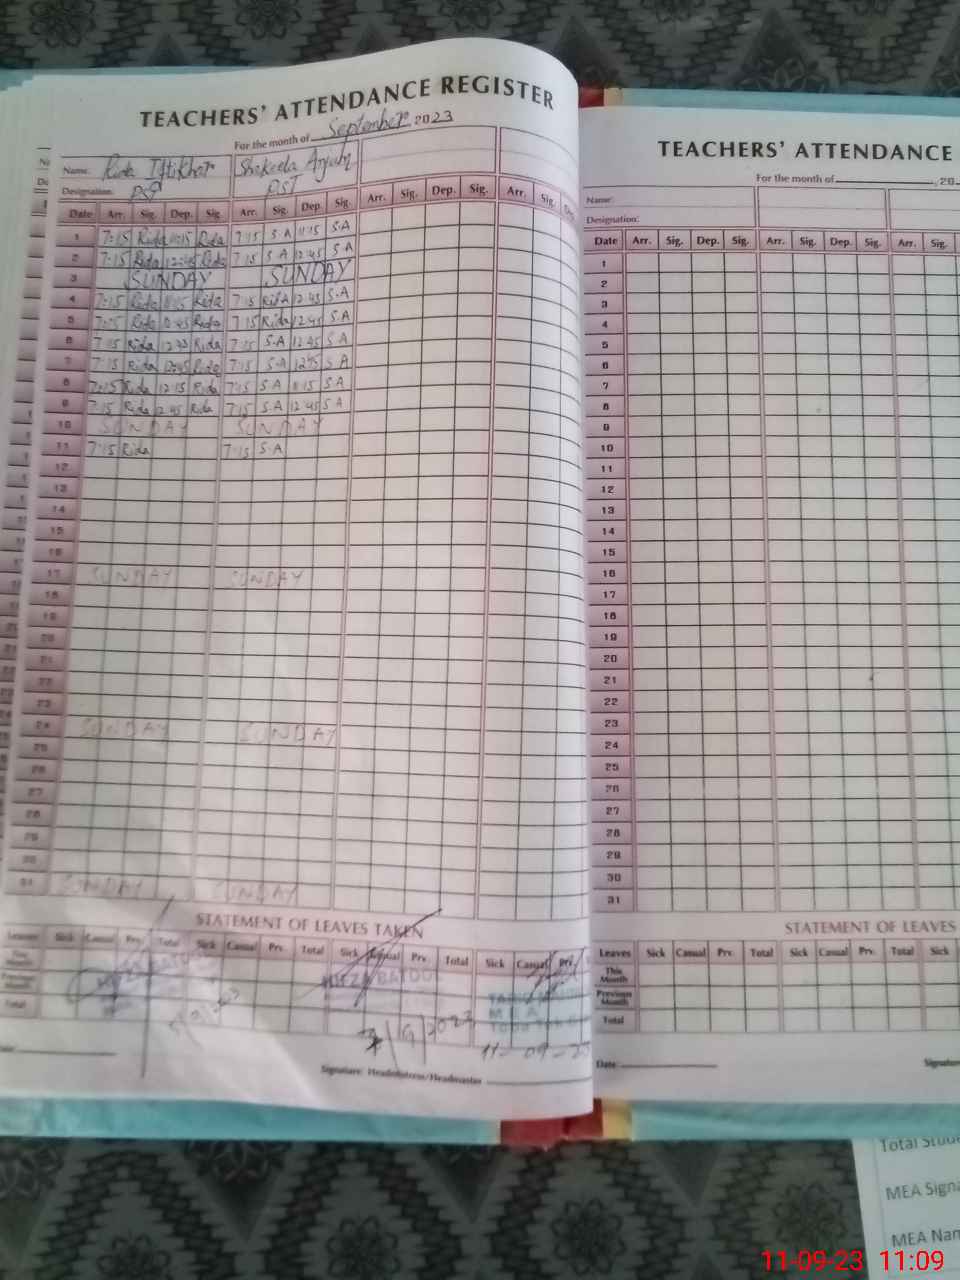 TEACHERS' ATTENDANCE REGISTER
For the month of September 2023
Name: Rida Iftikhar Shakeela Anjum
Designation: PST PST
Date Arr. Sig. Dep. Sig. Arr. Sig. Dep. Sig. Arr. Sig. Dep. Sig. Arr. Sig.
1 7:15 Rida 11:15 Rida 7:15 S.A 11:15 S.A
2 7:15 Rida 12:45 Rida 7:15 S.A 12:45 S.A
3 SUNDAY SUNDAY
4 7:15 Rida Rida 7:15 12:45 S.A
5 7:15 Rida 12:45 Rida 7:15 Rida 12:45 S.A
6 7:15 Rida 12:45 Rida 7:15 S.A 12:45 S.A
7 7:15 Rida 12:45 Rida 7:15 S.A 12:45 S.A
8 7:15 Rida 12:15 Rida 7:15 S.A 11:15 S.A
9 7:15 Rida 12:45 Rida 7:15 S.A 12:45 S.A
10 SUNDAY SUNDAY
11 7:15 Rida 7:15 S.A
12
13
14
15
16
17 SUNDAY SUNDAY
18
19
20
21
22
23
24 SUNDAY SUNDAY
25
26
27
28
29
30
31 SUNDAY SUNDAY
STATEMENT OF LEAVES TAKEN
Leaves Sick Casual Prv. Total Sick Casual Prv. Total Sick Casual Prv. Total Sick Casual Prv.
This Month
Previous Month
Total
HIFZA BATOOL
M E A
11-09-23
Signature: Headmistress/Headmaster
TEACHERS' ATTENDANCE
For the month of , 20
Name:
Designation:
Date Arr. Sig. Dep. Sig. Arr. Sig. Dep. Sig. Arr. Sig.
1
2
3
4
5
6
7
8
9
10
11
12
13
14
15
16
17
18
19
20
21
22
23
24
25
26
27
28
29
30
31
STATEMENT OF LEAVES
Leaves Sick Casual Prv. Total Sick Casual Prv. Total Sick Casual
This Month
Previous Month
Total
Date:
Total
MEA
MEA
11-09-23 11:09